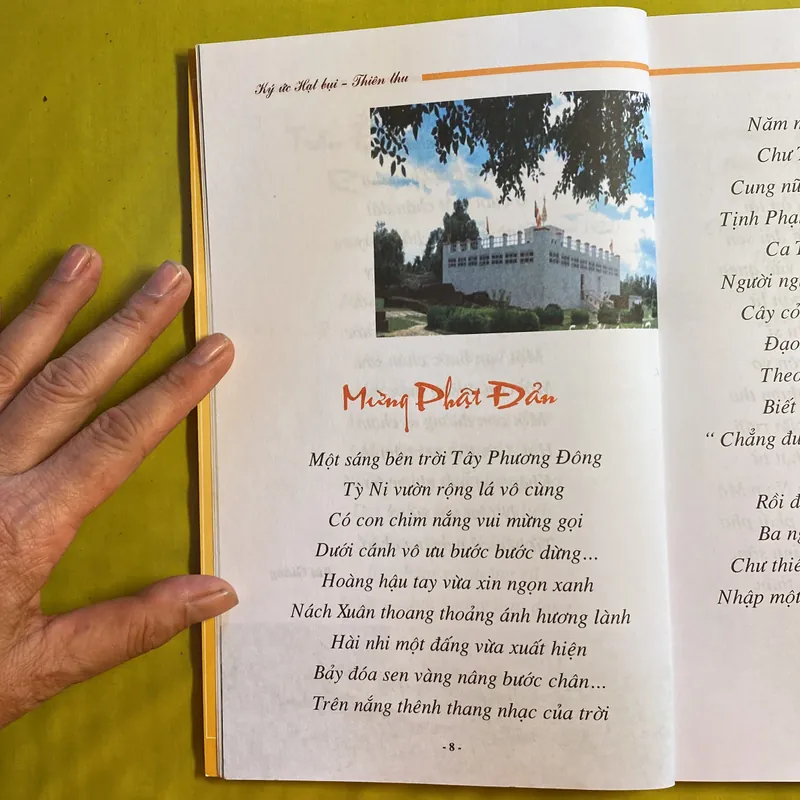 Ký ức Hạt bụi – Thiên thu
Mừng Phật Đản
Một sáng bên trời Tây Phương Đông
Tỳ Ni vườn rộng lá vô cùng
Có con chim nắng vui mừng gọi
Dưới cánh vô ưu bước bước dừng...
Hoàng hậu tay vừa xin ngọn xanh
Nách Xuân thoang thoảng ánh hương lành
Hài nhi một đấng vừa xuất hiện
Bảy đóa sen vàng nâng bước chân...
Trên nắng thênh thang nhạc của trời
- 8 -
Năm
Chư
Cung nữ
Tịnh
Ca
Người
Cây có
Đạo
Theo
Biết
“ Chẳng
Rồi
Ba
Chư
Nhập một